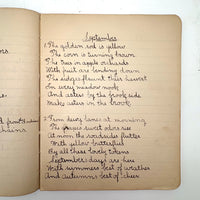 September
1. The golden rod is yellow
The corn is turning brown
The trees in apple orchards
With fruit are bending down
The
In every meadow nook
And asters by the brook side
Make asters in the brook.
2. From dewy lanes at morning
The grapes sweet odors rise
At noon the roadsides flutter
With yellow butterflies
By all these lovely tokens
September days are here
With summers best of weather
And autumns best of cheer